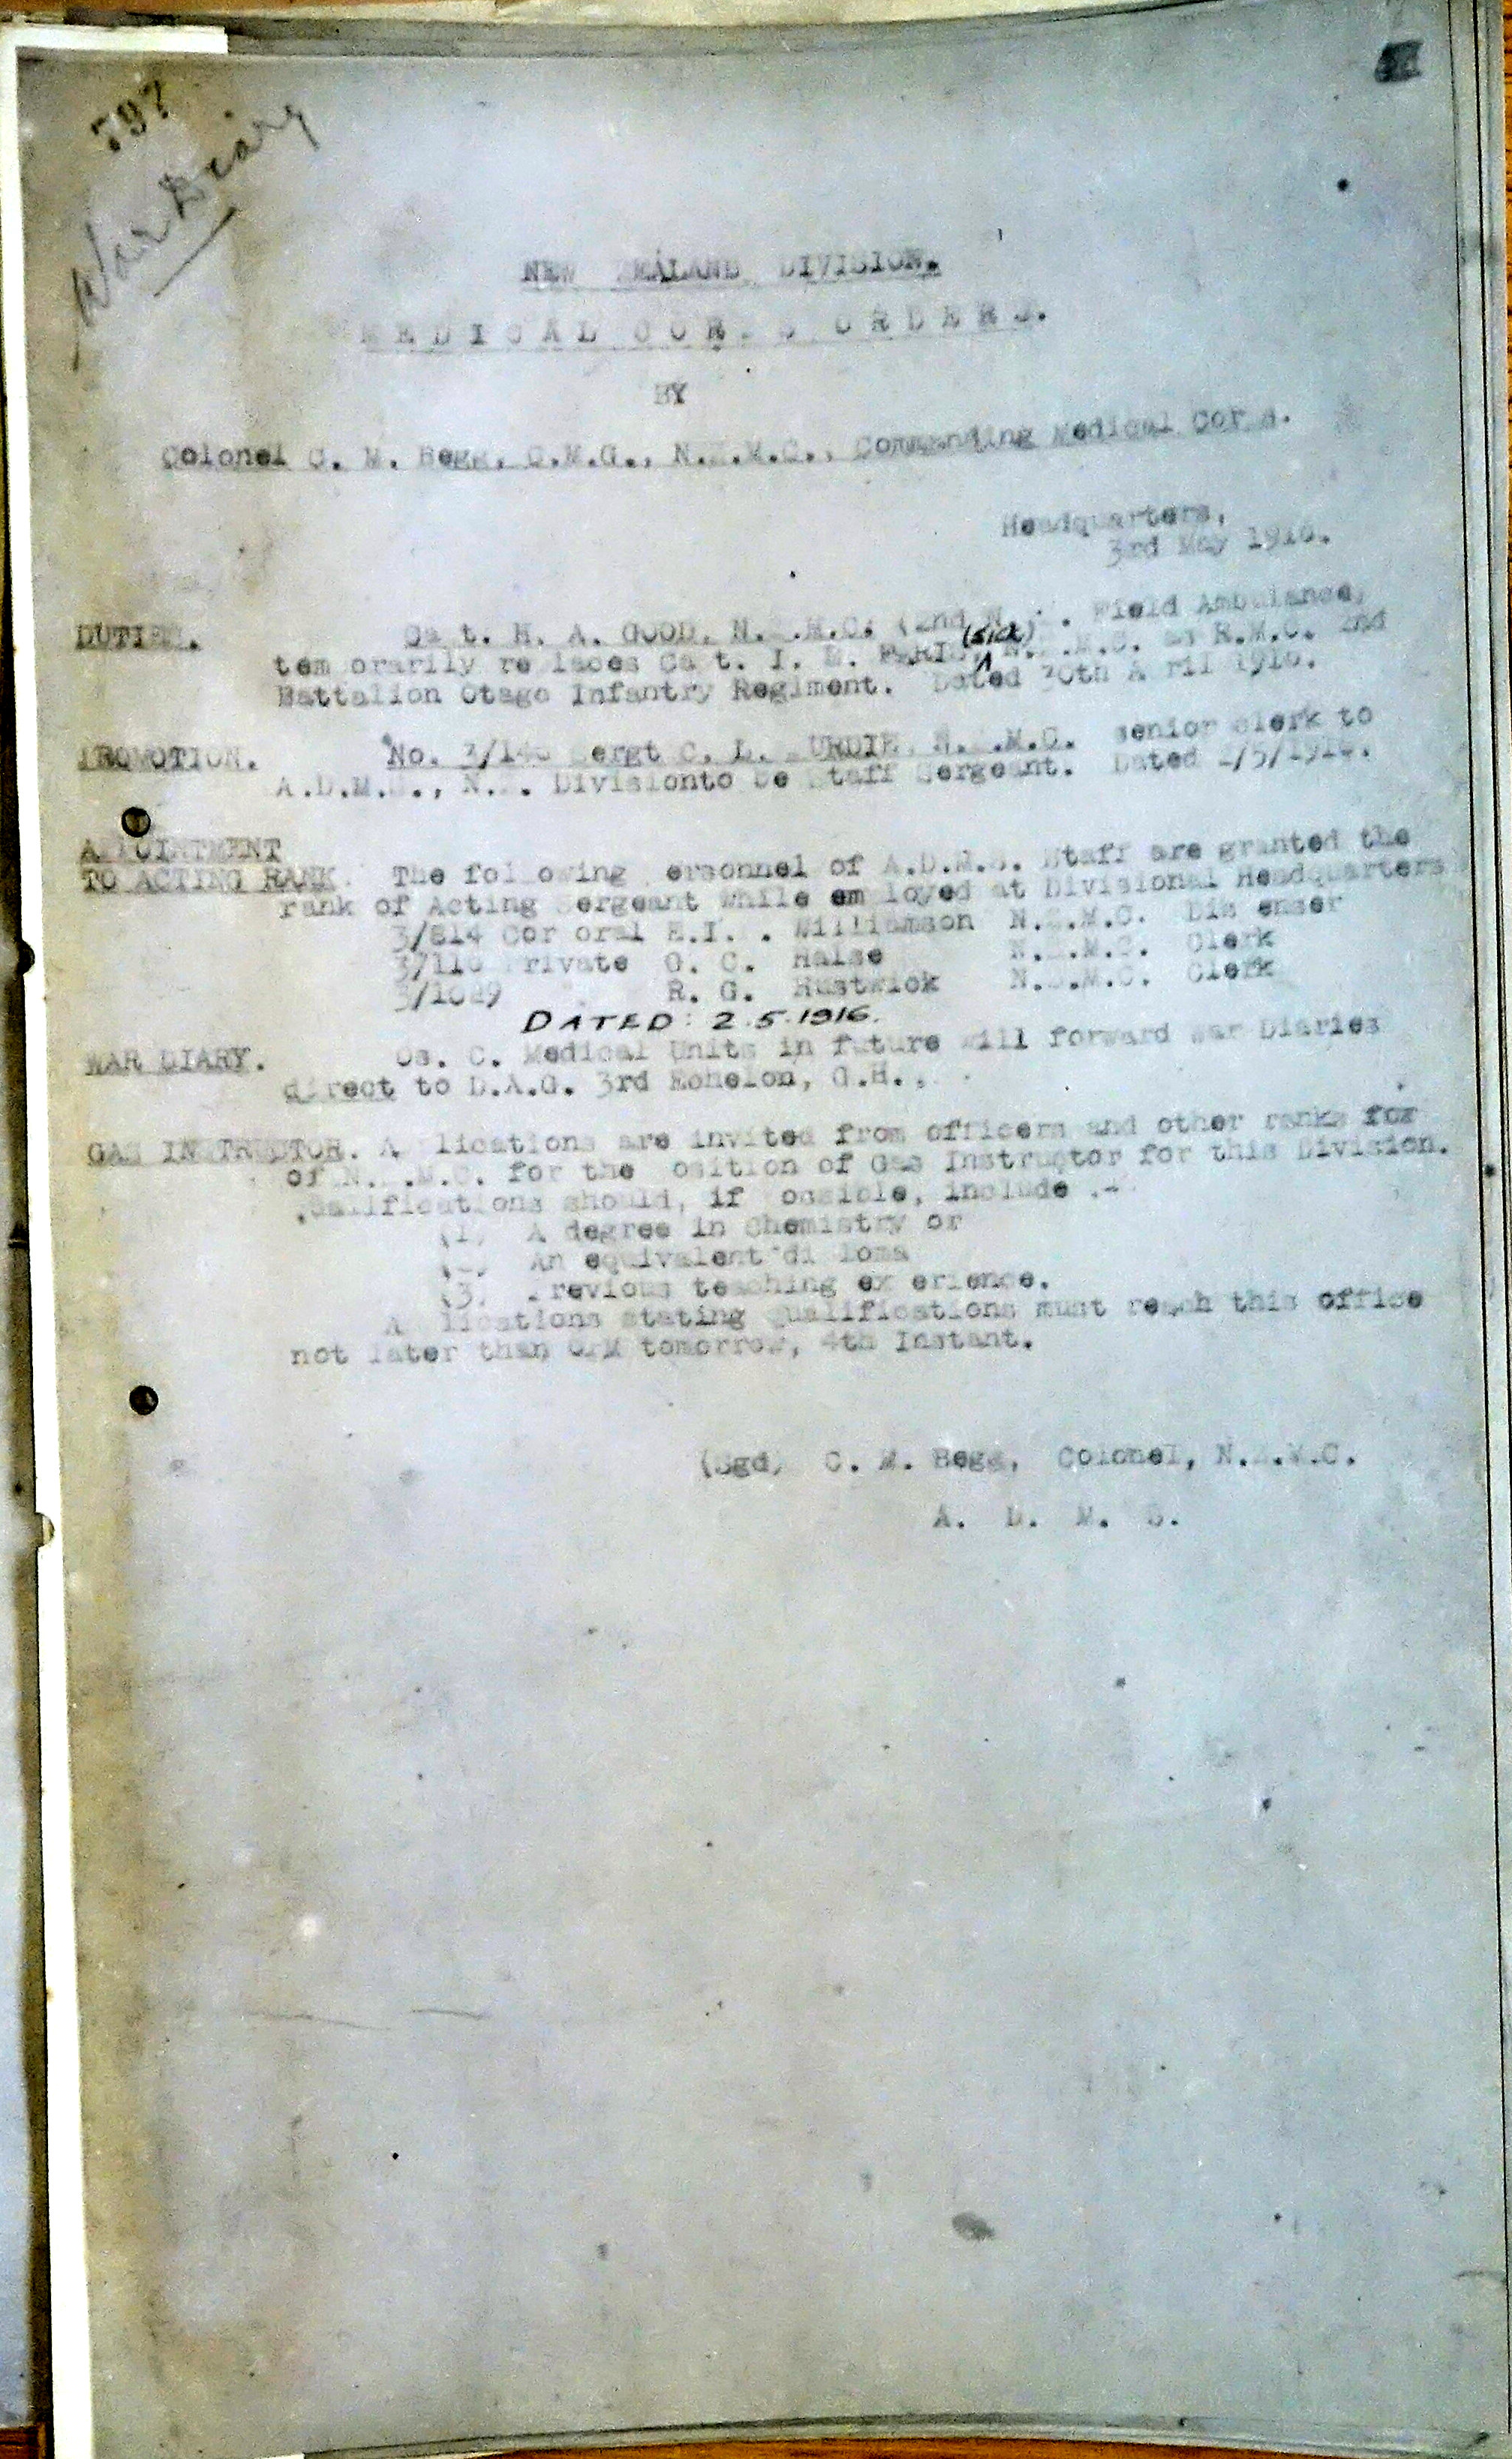 797
War Diary
NEW ZEALAND DIVISION.
MEDICAL CORPS ORDERS.
BY
Colonel C. M. Begg, C.M.G., N.Z.M.C., Commanding Medical Corps.
Headquarters,
3rd May 1916.
DUTIES. Capt. H. A. GOOD, N.Z.M.C. (2nd N.Z. Field Ambulance,
(sick)
temporarily replaces Capt. I. N.Z.M.C. as R.M.O. 2nd
Battalion Otago Infantry Regiment. Dated 30th April 1916.
PROMOTION. No. Sergt C. L. N.Z.M.C. senior clerk to
A.D.M.S., N.Z. Divisionto be Staff Sergeant. Dated
APPOINTMENT
TO ACTING RANK. The following personnel of A.D.M.S. Staff are granted the
rank of Acting Sergeant while employed at Divisional Headquarters
3/814 Corporal Williamson N.Z.M.C. Dispenser
Private G. C. Halse N.Z.M.C. Clerk
R. G. Hustwick N.Z.M.C. Clerk
DATED: 2.5.1916.
WAR DIARY. Os. C. Medical Units in future will forward War Diaries
direct to D.A.G. 3rd Echelon, G.H.Q.
GAS INSTRUCTOR. Applications are invited from officers and other ranks for
of N.Z.M.C. for the position of Gas Instructor for this Division.
Qualifications should, if possible, include :-
(1) A degree in Chemistry or
(2) An equivalent diploma
(3) Previous teaching experience.
Applications stating qualifications must reach this office
not later than tomorrow, 4th Instant.
(Sgd) C. M. Begg, Colonel, N.Z.M.C.
A. D. M. S.